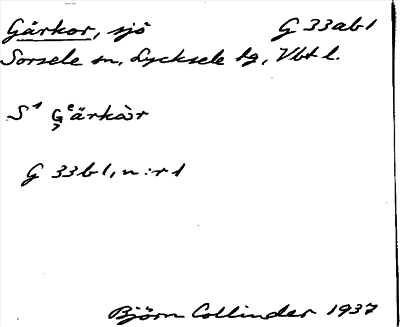 Gärkor, sjö G 33ab1
Sorsele sn, Lycksele tg, Vbt l.
S¹ G̬ᵉärkàr
G 33b1, n:r 1
Björn Collinder 1937